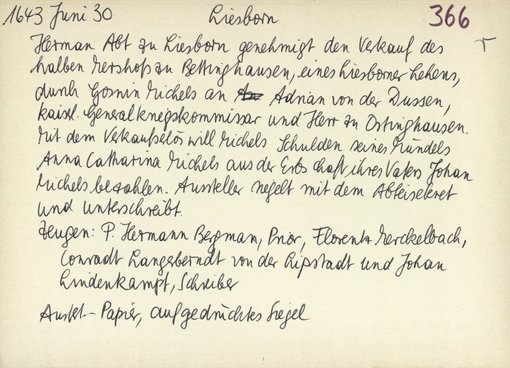 1643 Juni 30 Liesborn 366
Herman Abt zu Liesborn genehmigt den Verkauf des
halben Mershofs zu Bettinghausen, eines Liesborner Lehens,
durch Goswin Michels an Adrian von der Dussen,
kaiserl. Generalkriegskommissar und Herr zu Ostinghausen.
Mit dem Verkaufserlös will Michels Schulden seines Mündels
Anna Catharina Michels aus der Erbschaft ihres Vaters Johan
Michels bezahlen. Aussteller siegelt mit dem Abteisekret
und unterschreibt.
Zeugen: P. Hermann Bergman, Prior, Florentz Merckelbach,
Conradt Langeberndt von der Lipstadt und Johan
Lindenkampf, Schreiber
Ausf. - Papier, aufgedrücktes Siegel